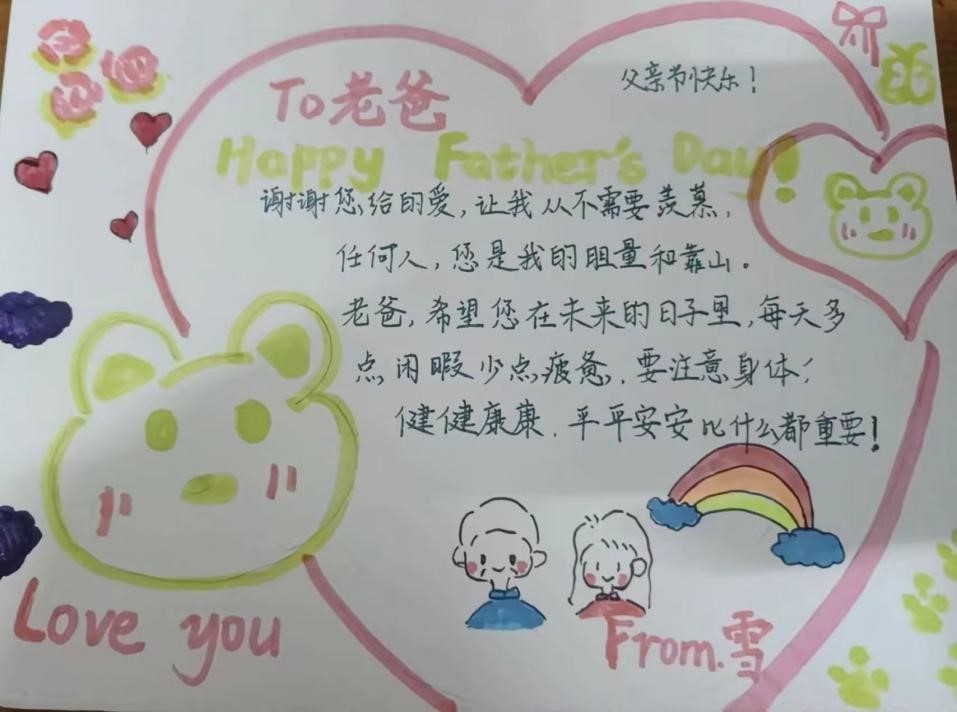 父亲节快乐！
To老爸
Happy Father's Day!
谢谢您给的爱，让我从不需要羡慕，
任何人，您是我的胆量和靠山。
老爸，希望您在未来的日子里，每天多
点闲暇少点疲惫，要注意身体！
健健康康，平平安安比什么都重要！
Love you
From.雪